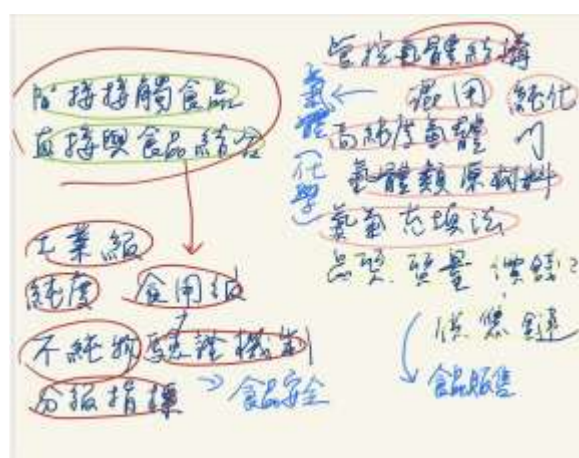 間接接觸食品
直接與食品結合
工業級
純度 食用級
不純物 驗證機制
分級指標 → 食品安全
管控氣體結構
氣體(化學) ← 適用 純化
高純度氣體
氣體類原材料
氮氣充填法
品質 質量 價錢?
供應鏈
食品販售